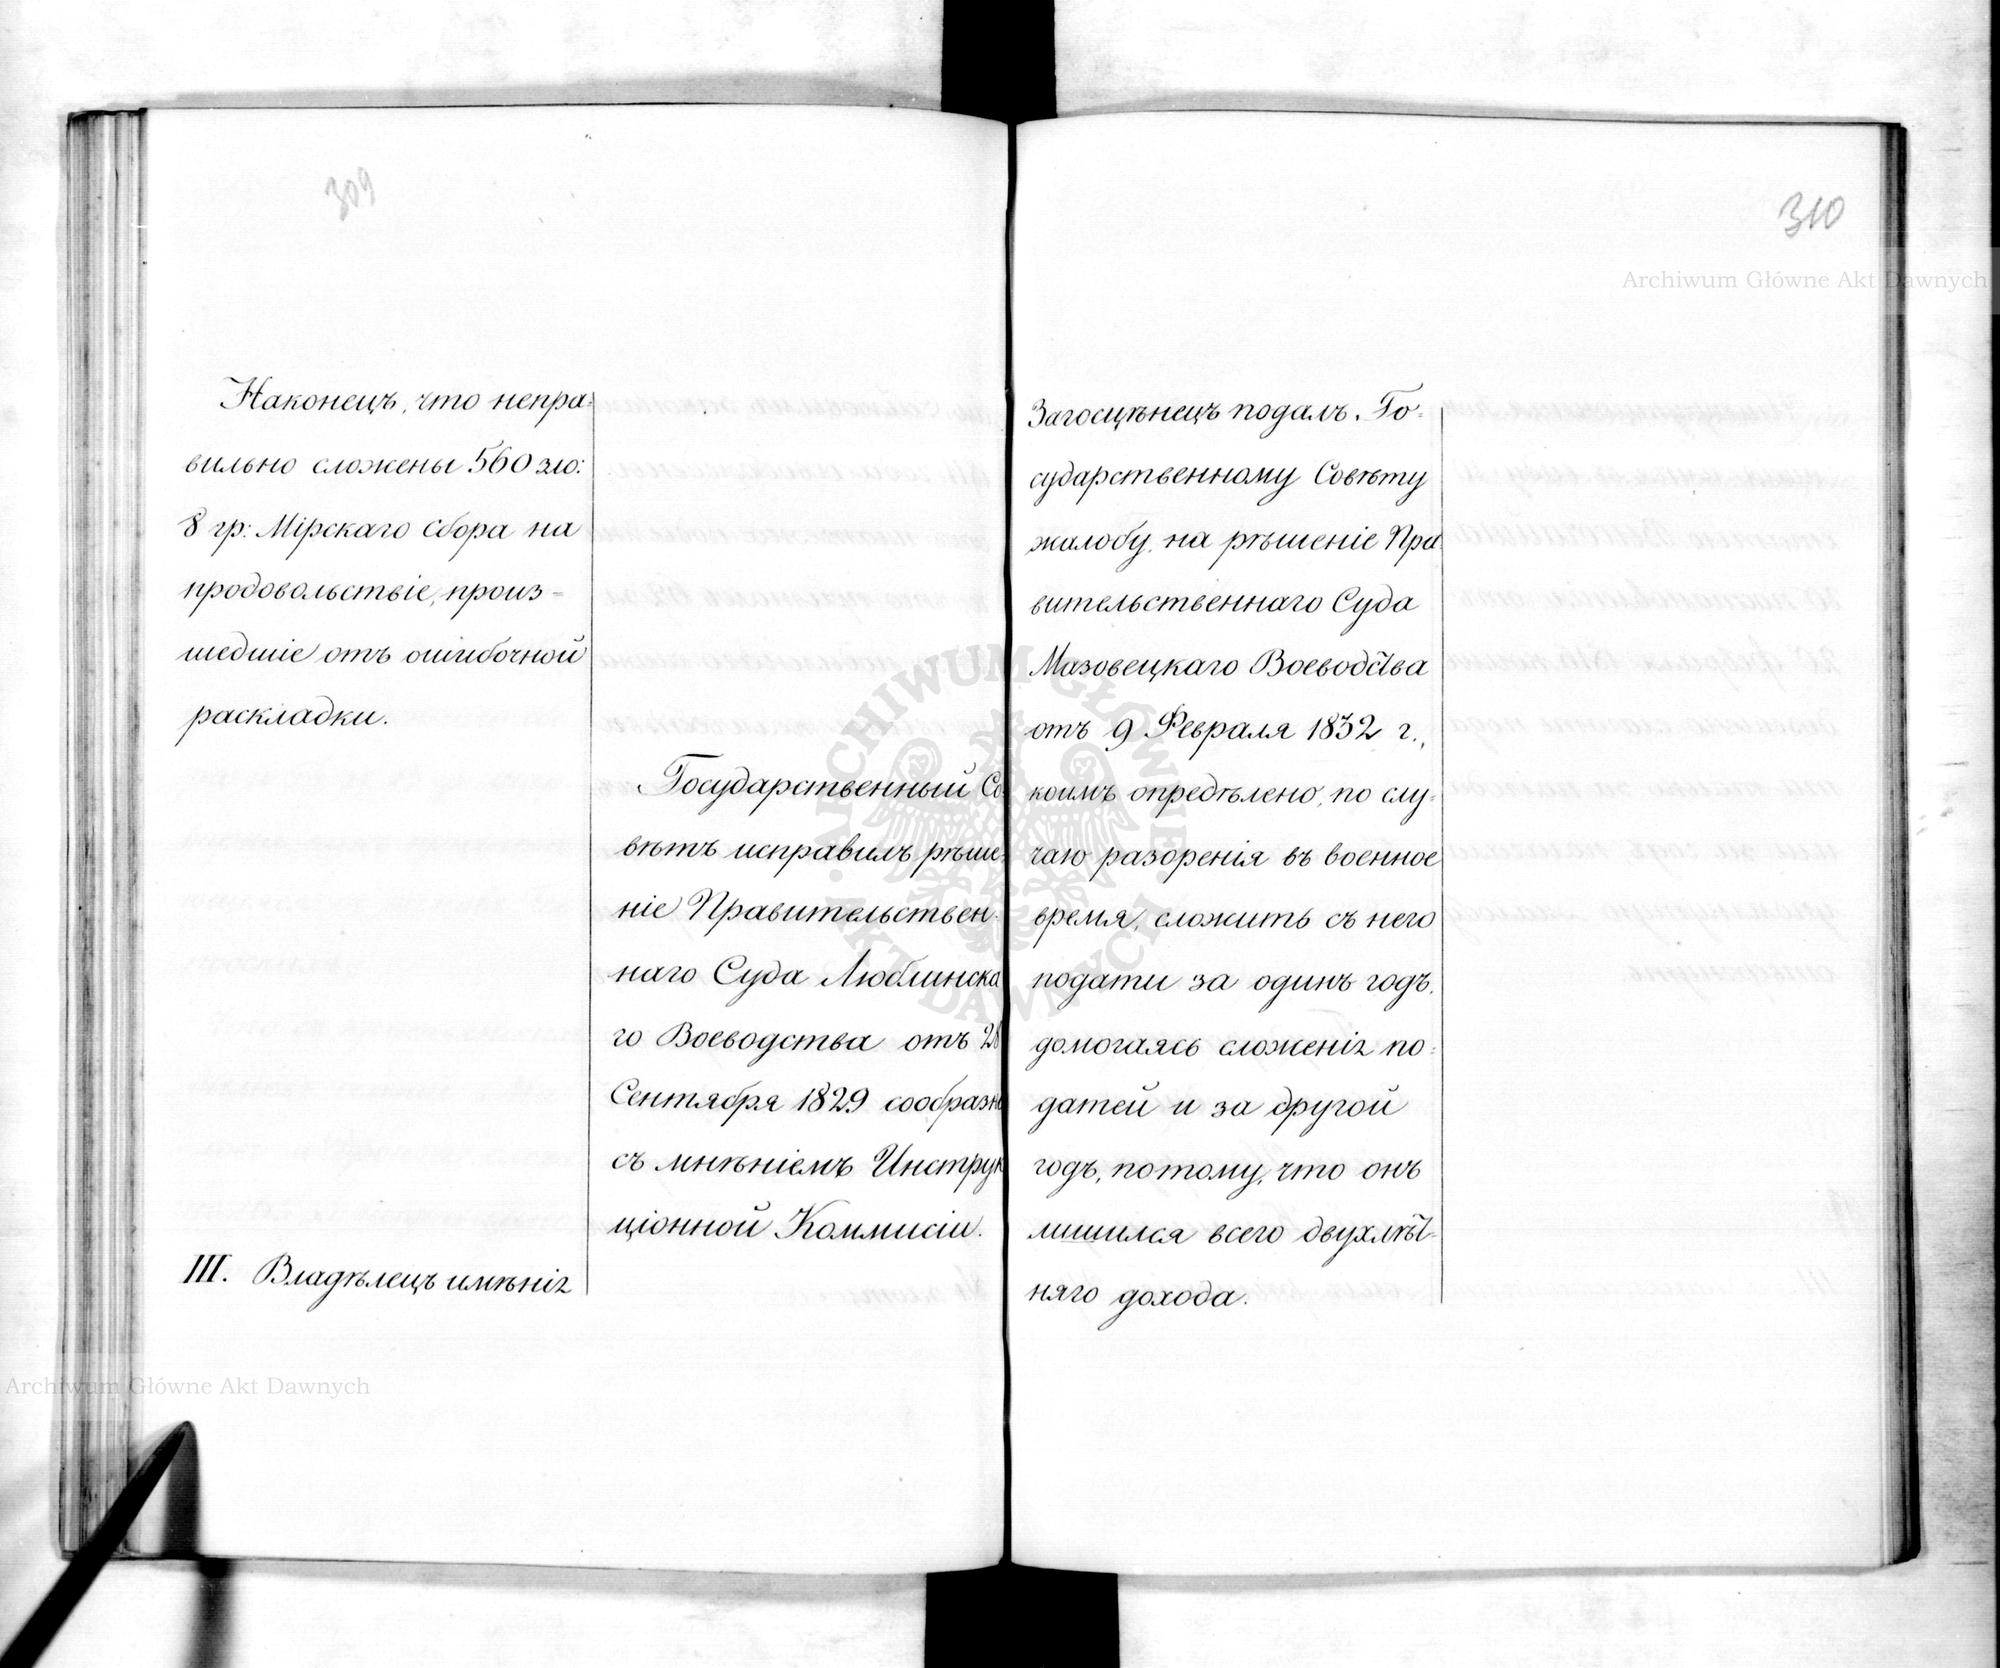 309
Наконецъ, что непра=
вильно сложены 560 зло:
8 гр: Мірскаго сбора на
продовольствіе, произ=
шедшіе отъ ошибочной
раскладки.
Государственный Со
вѣтъ исправилъ рѣше=
ніе Правительствен=
наго Суда Люблинска
го Воеводства отъ 28
Сентября 1829 сообразно
съ мнѣніемъ Инструк
ціонной Коммисіи.
III. Владѣлецъ имѣнія
310
Загосцѣнецъ подалъ Го=
сударственному Совѣту
жалобу, на рѣшеніе Пра
вительственнаго Суда
Мазовецкаго Воеводства
отъ 9 Февраля 1832 г.,
коимъ опредѣлено, по слу=
чаю разоренія въ военное
время, сложить съ него
подати за одинъ годъ,
домогаясь сложенія по=
датей и за другой
годъ, потому, что онъ
лишился всего двухлѣт=
няго дохода.
Archiwum Główne Akt Dawnych
Archiwum Główne Akt Dawnych
ARCHIWUM GŁÓWNE AKT DAWNYCH